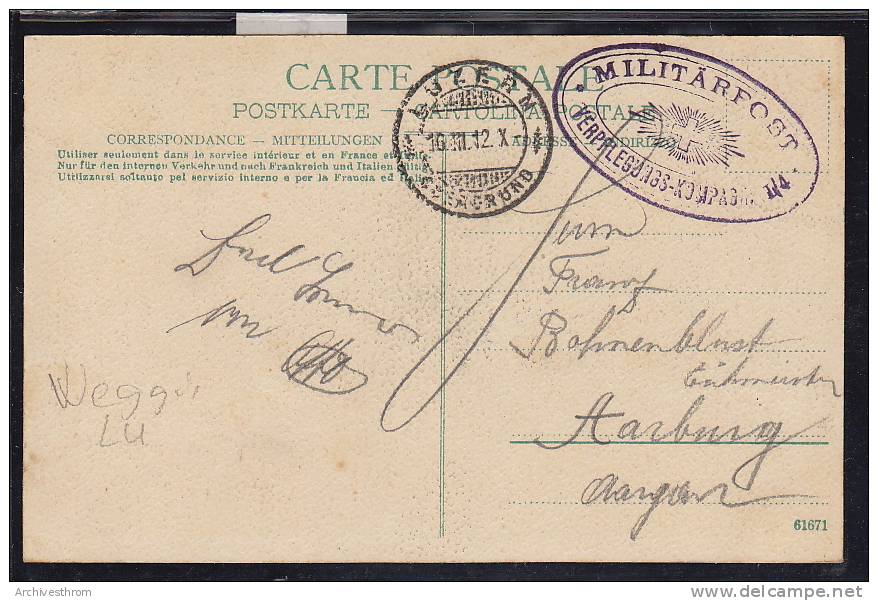 CARTE POSTALE
POSTKARTE — CARTOLINA POSTALE
CORRESPONDANCE — MITTEILUNGEN
ADRESSE
Utiliser seulement dans le service intérieur et en France et
Nur für den internen Verkehr und nach Frankreich und Italien
Utilizzarsi soltanto pel servizio interno e per la Francia ed
LUZERN
III.12.X
MILITÄRPOST
VERPFLEGUNGS-KOMPAGNIE I/4
Franz
Bohnenblust
Aarburg
Aargau
von
Weggis
LU
61671
Archivesthrom
delcampe.net